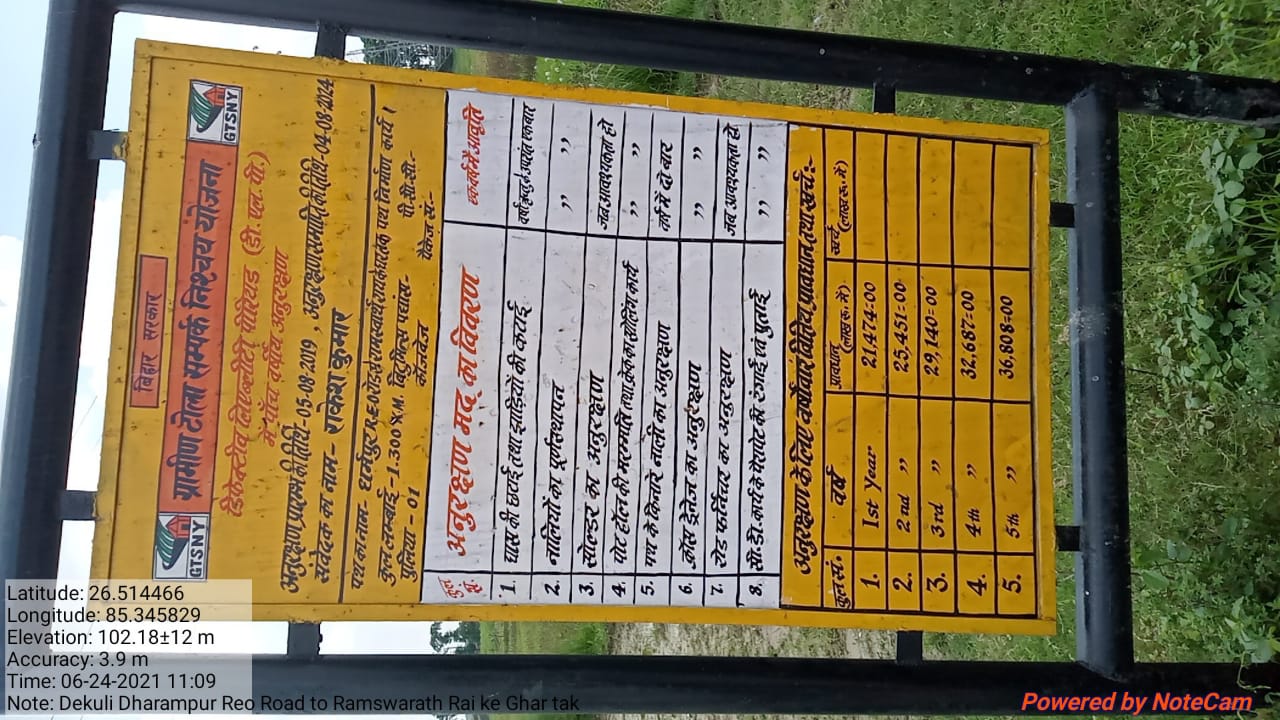 बिहार सरकार
GTSNY ग्रामीण टोला सम्पर्क निश्चय योजना GTSNY
डिफेन्टीव लिएब्लीटि पीरियड (डी.एल.पी.)
में पाँच वर्षीय अनुरक्षण
अनुरक्षण प्रारम्भ की तिथि-05.08.2019, अनुरक्षण समाप्ति की तिथि-04.08.2024
संवेदक का नाम- राकेश कुमार
पथ का नाम- धर्मपुर R.E.O रोड से रामस्वार्थ राय के घर तक पथ निर्माण कार्य।
कुल लम्बाई-1.300 K.M. बिटुमिन्स पथांस- पी.सी.सी.-
पुलिया-01 कॉजवेज- पैकेज सं:-
अनुरक्षण मद का विवरण
1. घास की छटाई तथा झाड़ियों की कटाई वर्षा ऋतु के उपरांत एक बार
2. नालियों का पूर्णस्थापन ,, ,,
3. सोल्डर का अनुरक्षण जब आवश्यकता हो
4. पोट हॉल की मरम्मति तथा क्रेक का सीलिंग कार्य ,, ,,
5. पथ के किनारे नाली का अनुरक्षण वर्ष में दो बार
6. क्रॉस ड्रेनेज का अनुरक्षण ,, ,,
7. रोड फर्निचर का अनुरक्षण जब आवश्यकता हो
8. सी.डी. कार्य के पैरापेट की रंगाई एवं पुताई ,, ,,
अनुरक्षण के लिए वर्षवार वित्तिय प्रावधान तथा खर्च:-
वर्ष प्रावधान (लाख रू. में) खर्च (लाख रू. में)
1. 1st Year 21,474=00
2. 2nd ,, 25,451=00
3. 3rd ,, 29,140=00
4. 4th ,, 32,687=00
5. 5th ,, 36,808=00
Latitude: 26.514466
Longitude: 85.345829
Elevation: 102.18±12 m
Accuracy: 3.9 m
Time: 06-24-2021 11:09
Note: Dekuli Dharampur Reo Road to Ramswarath Rai ke Ghar tak
Powered by NoteCam